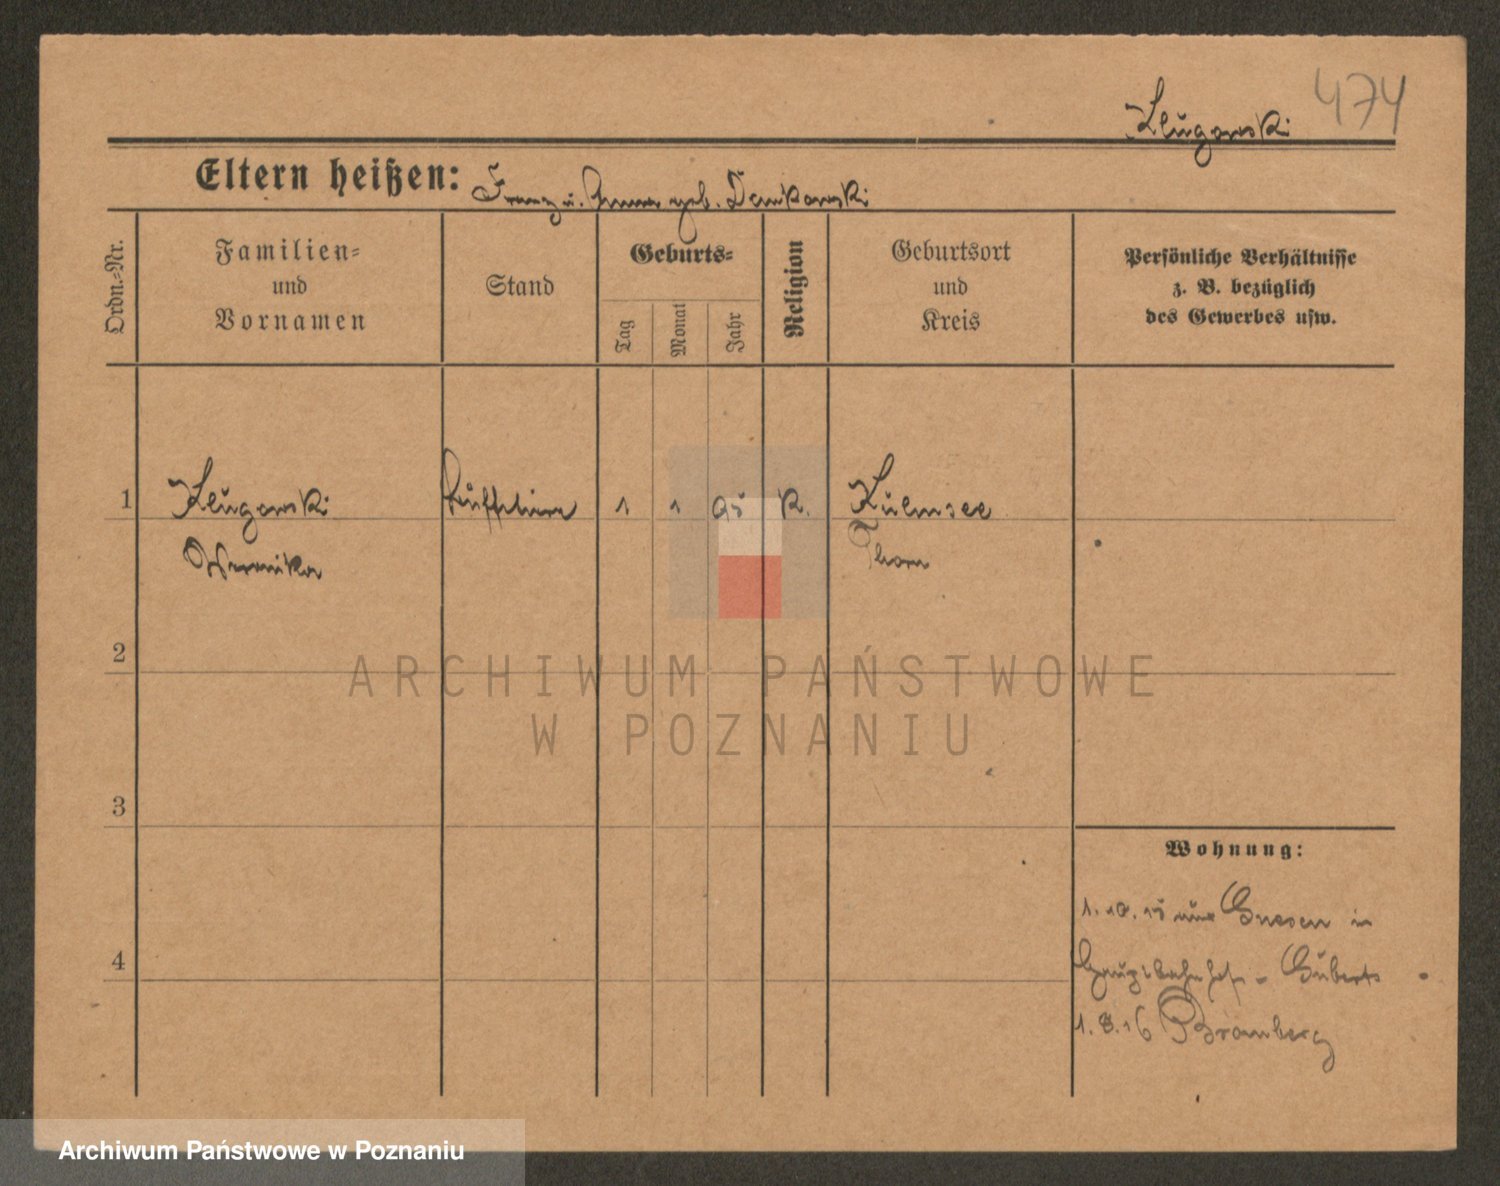 474
Eltern heißen: Franz u. Anna geb.
Ordn.=Nr.
Familien=
und
Vornamen
Stand
Geburts=
Tag
Monat
Jahr
Religion
Geburtsort
und
Kreis
Persönliche Verhältnisse
z. B. bezüglich
des Gewerbes usw.
1
1 1 95 K. Kulmsee
Thorn
2
3
4
Wohnung:
1.10.15 Gnesen in
Hauptbahnhof -
1.8.16 Bromberg
ARCHIWUM PAŃSTWOWE
W POZNANIU
Archiwum Państwowe w Poznaniu